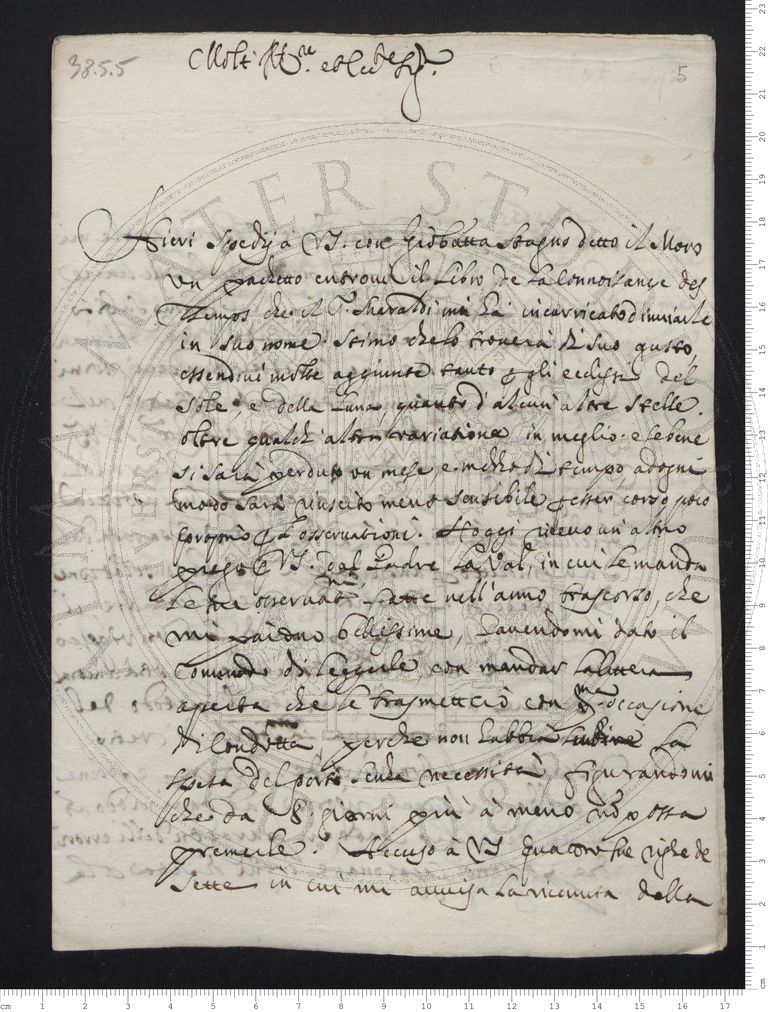 38.5.5
5
Molt Ill.re et Ecc.te Sig.r
Hieri spedij à VS. con Giobatta Stagno detto il Moro
un pachetto entrovi il Libro de la Connoissance des
Temps che il P. Sheraldi mi hà incarricato d'inviarle
in suo nome. Stimo che lo troverà di suo gusto,
essendovi molte aggiunte tanto p gli ecclissi del
Sole, e della Luna, quanto d'alcun'altre stelle.
oltre qualch'altra variatione in meglio. e sebene
si sarà perduto un mese, e mezzo di tempo, adogni
modo sarà riuscito meno sensibile p esser corso poco
proprio p l'osservationi. Hoggi ricevo un'altro
piego p VS. dal Padre La Val, in cui le manda
le sue osservat.ni fatte nell'anno trascorso, che
mi paiono bellissime, havendomi dato il
comando di leggerle, con mandar la lettera
aperta che le trasmetterò con p.ma occasione
di condotta, perche non habbia la
spesa del porto senza necessità, figurandomi
che da 8. giorni più à meno nõ possa
premerle. Accuso à VS quattro sue righe de
sette in cui mi avvisa la ricevuta della